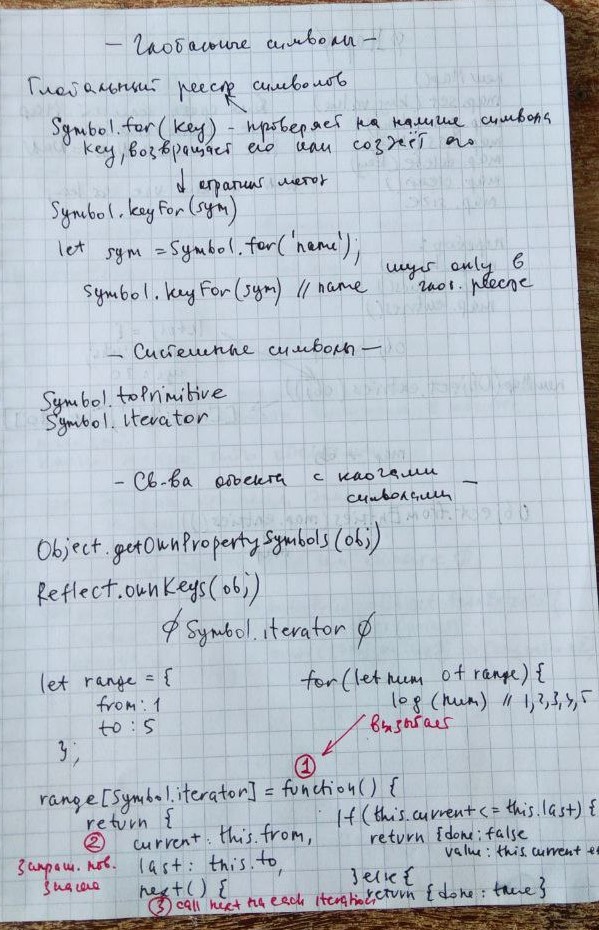 — Глобальные символы —
Глобальный реестр символов
Symbol.for(key) - проверяет на наличие символа
key, возвращает его или создаёт его
↓ обратный метод
Symbol.keyFor(sym)
let sym = Symbol.for('name');
Symbol.keyFor(sym) // name
ищет only в
глоб. реестре
— Системные символы —
Symbol.toPrimitive
Symbol.iterator
- Св-ва объекта с ключами
символами -
Object.getOwnPropertySymbols(obj)
Reflect.ownKeys(obj)
Symbol.iterator
let range = {
from: 1
to: 5
};
for(let num of range) {
log(num) // 1,2,3,4,5
вызывает
1
range[Symbol.iterator] = function() {
return {
2
current: this.from,
запраш. нов.
last: this.to,
next() {
3 call next на each iteration
If (this.current <= this.last) {
return {done: false
value: this.current
}else{
return {done: true}